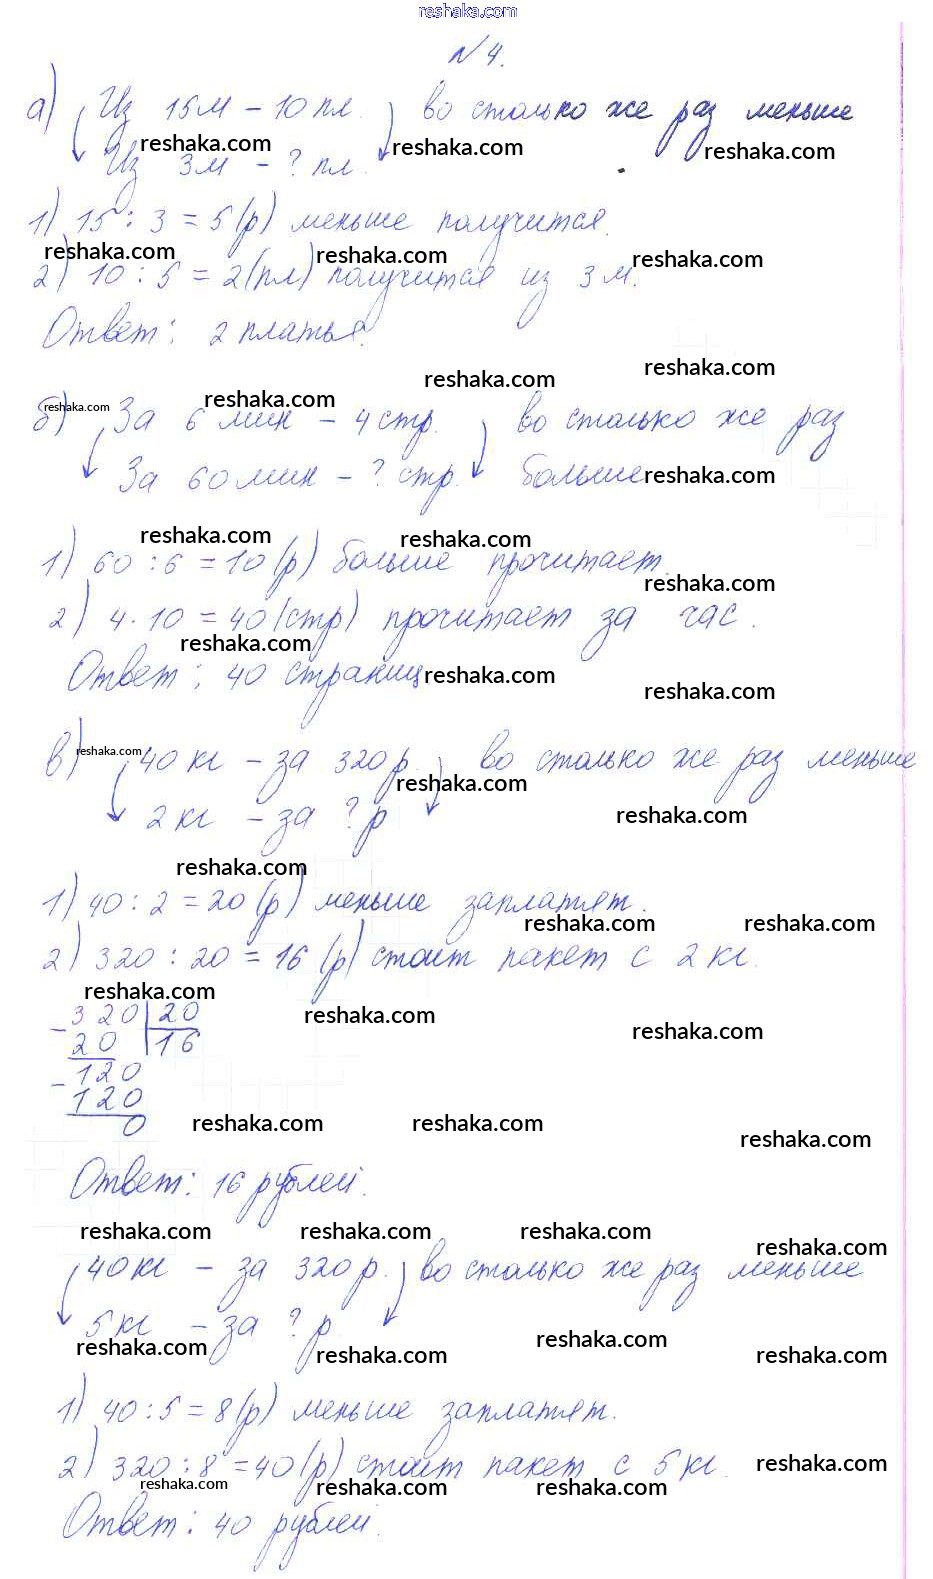 reshaka.com
№ 4.
а) Из 15 м – 10 пл. во столько же раз меньше
reshaka.com reshaka.com reshaka.com
Из 3 м – ? пл.
1) 15 : 3 = 5 (р) меньше получится.
reshaka.com reshaka.com reshaka.com
2) 10 : 5 = 2 (пл) получится из 3 м.
Ответ: 2 платья.
reshaka.com reshaka.com
reshaka.com reshaka.com
б) За 6 мин – 4 стр. во столько же раз
За 60 мин – ? стр. больше reshaka.com
reshaka.com reshaka.com
1) 60 : 6 = 10 (р) больше прочитает.
reshaka.com
2) 4 · 10 = 40 (стр) прочитает за час.
reshaka.com
Ответ: 40 страниц reshaka.com
reshaka.com
в) reshaka.com 40 кг – за 320 р. во столько же раз меньше
reshaka.com
2 кг – за ? р reshaka.com
reshaka.com
1) 40 : 2 = 20 (р) меньше заплатят.
reshaka.com reshaka.com
2) 320 : 20 = 16 (р) стоит пакет с 2 кг.
reshaka.com
– 320 | 20 reshaka.com reshaka.com
20 16
– 120
120
0 reshaka.com reshaka.com reshaka.com
Ответ: 16 рублей.
reshaka.com reshaka.com reshaka.com reshaka.com
40 кг – за 320 р. во столько же раз меньше
5 кг – за ? р.
reshaka.com reshaka.com reshaka.com reshaka.com
1) 40 : 5 = 8 (р) меньше заплатят.
2) 320 : 8 = 40 (р) стоит пакет с 5 кг. reshaka.com
reshaka.com reshaka.com reshaka.com
Ответ: 40 рублей.